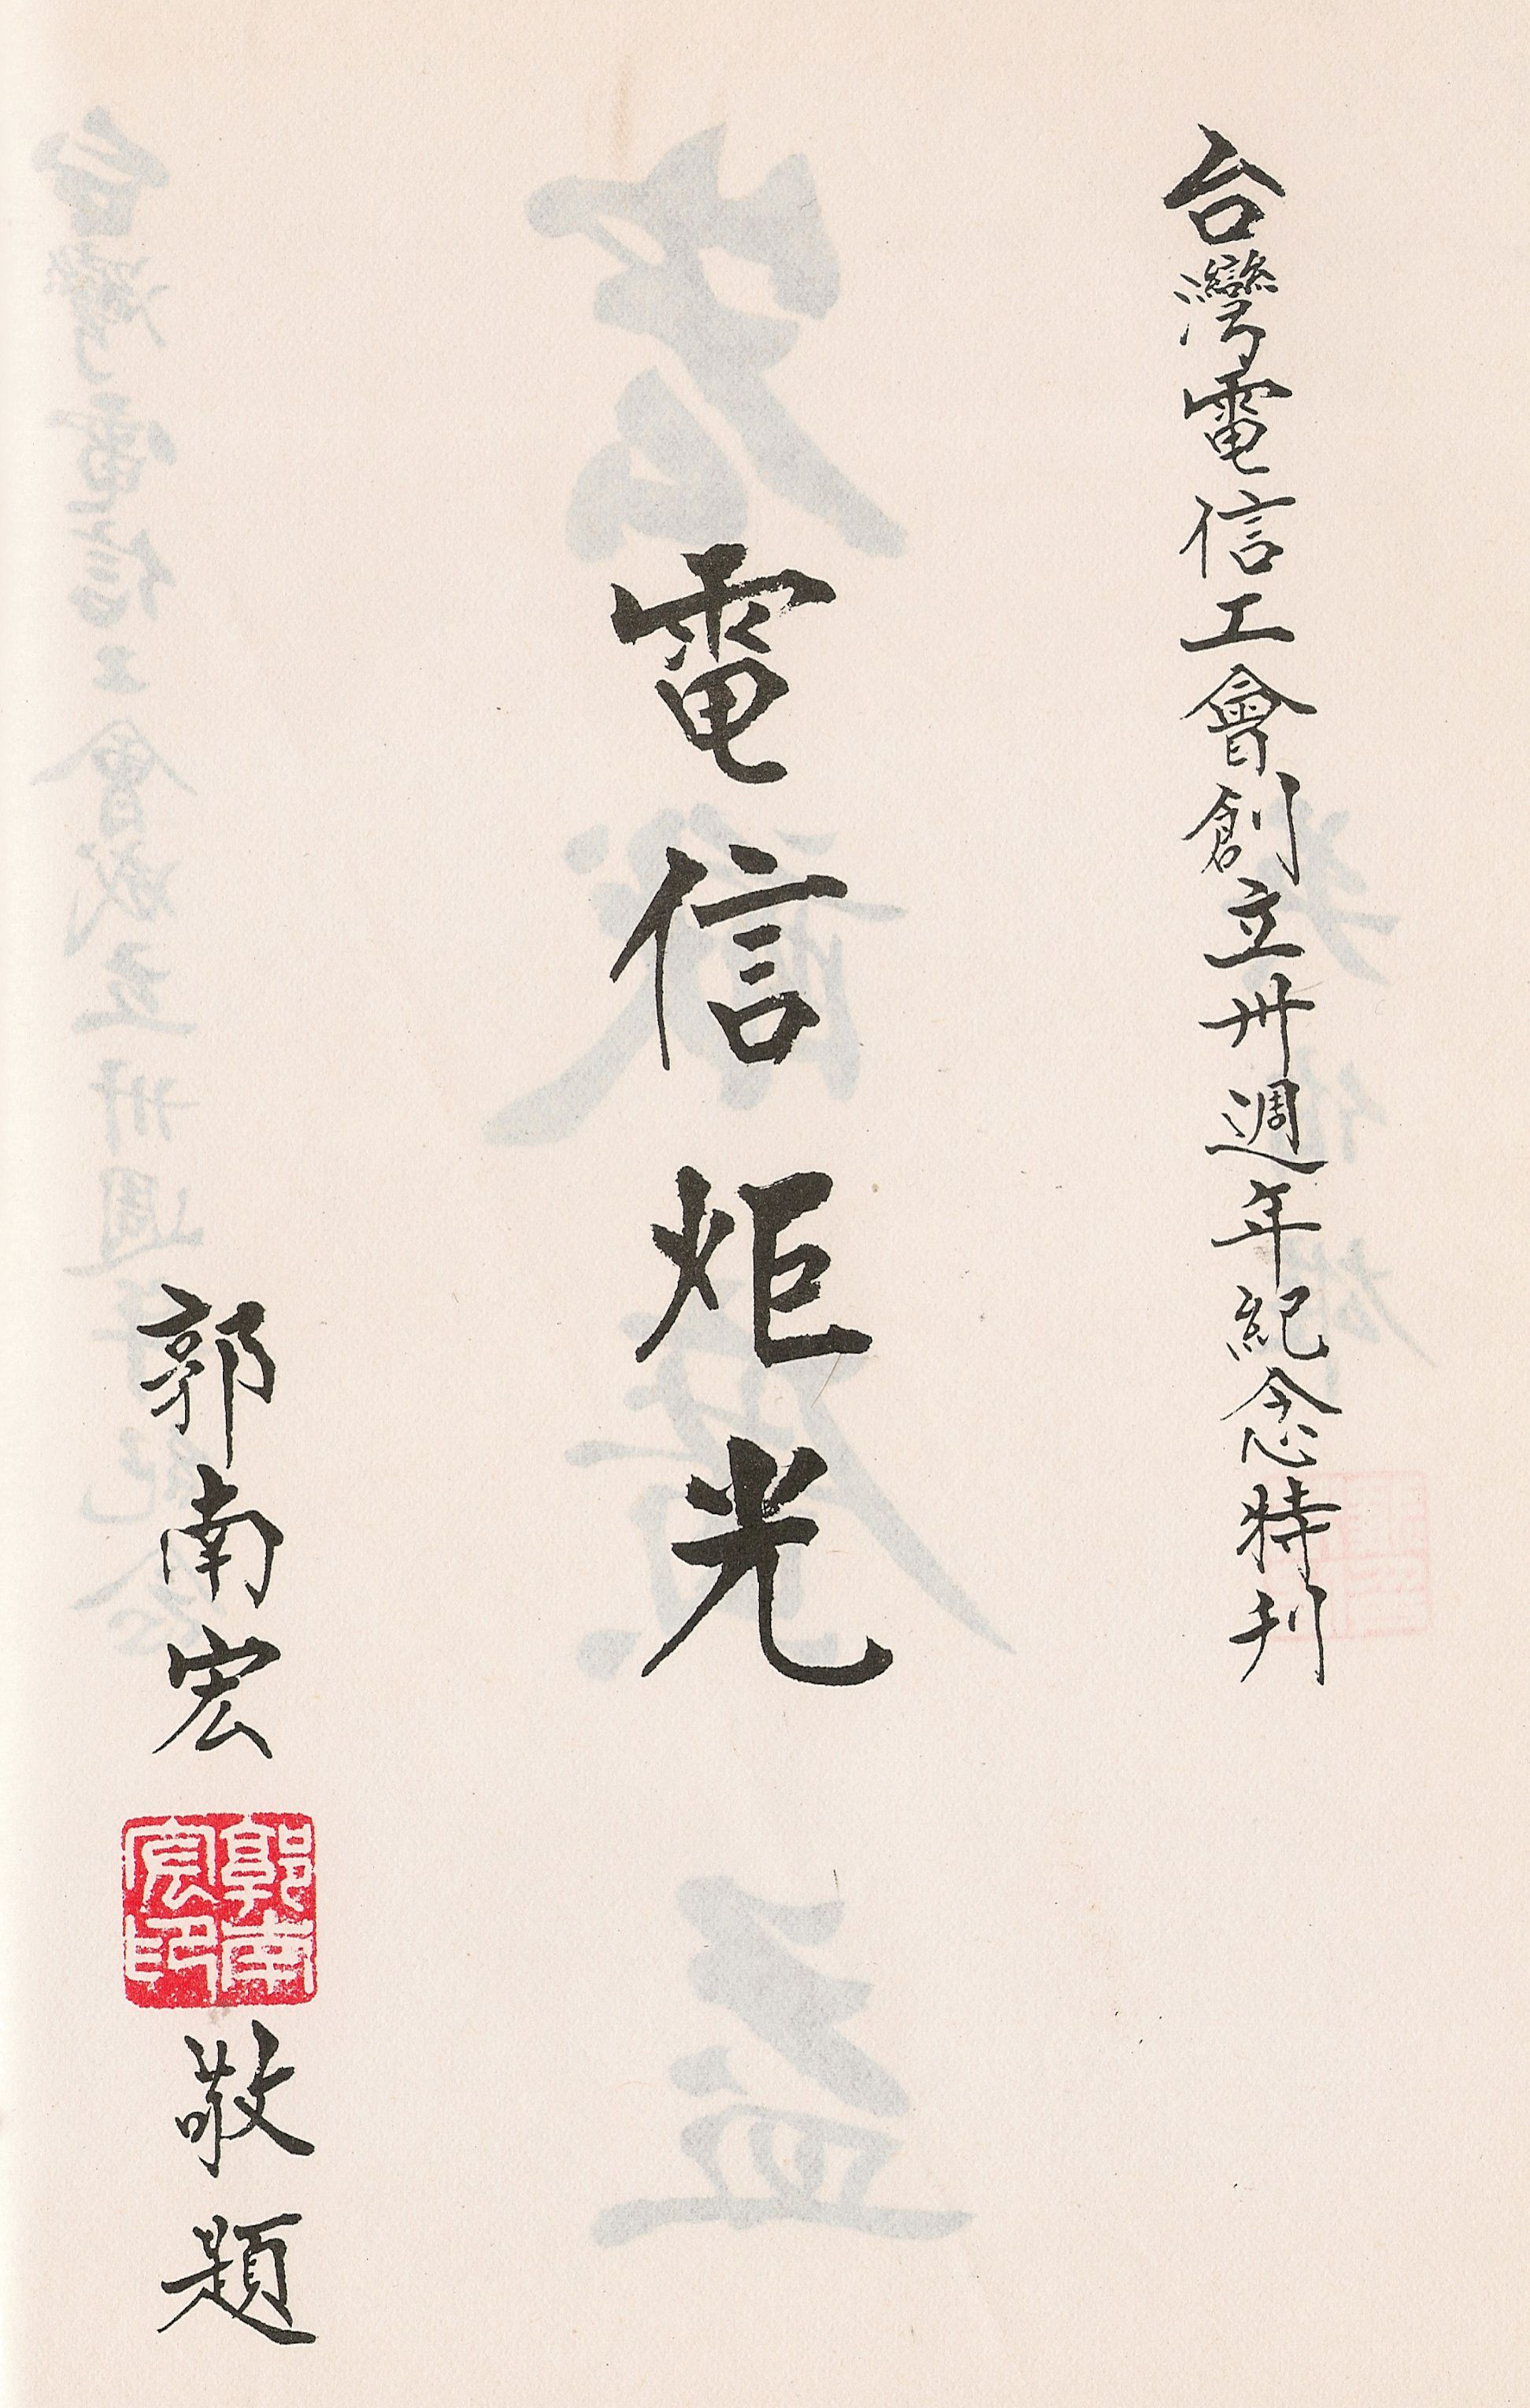 台灣電信工會創立卅週年紀念特刊
電信炬光
郭南宏
郭南宏印
敬題